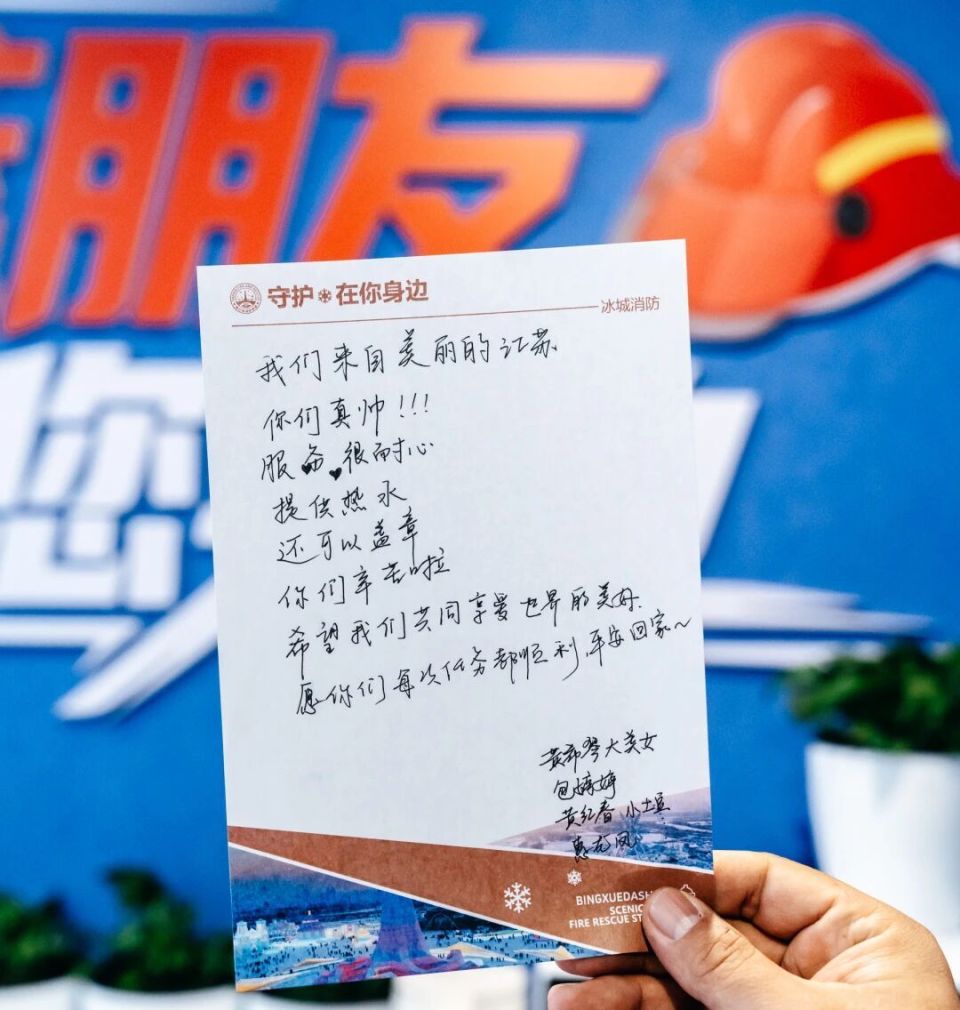 朋友
你
守护 在你身边
冰城消防
我们来自美丽的江苏
你们真帅！！！
服务很耐心
提供热水
还可以盖章
你们辛苦啦
希望我们共同享受世界的美好.
愿你们每次任务都顺利,平安回家~
黄希琴大美女
包婷婷
黄红春 小土豆
惠龙凤
BINGXUEDASH
SCENIC
FIRE RESCUE ST